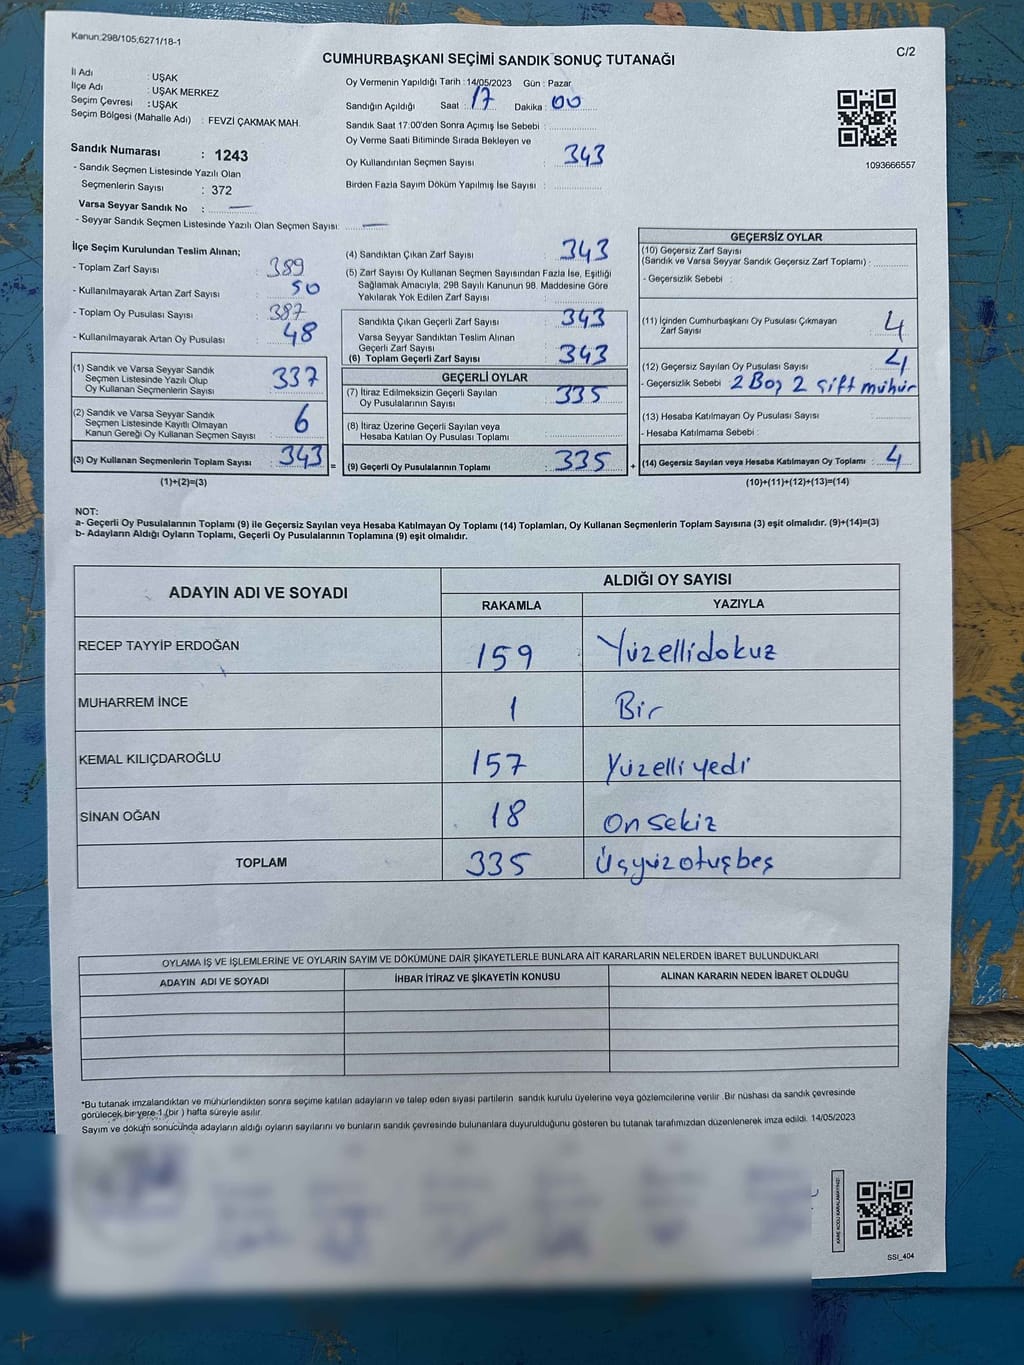 Kanun:298/105;6271/18-1
C/2
CUMHURBAŞKANI SEÇİMİ SANDIK SONUÇ TUTANAĞI
İl Adı : UŞAK
İlçe Adı : UŞAK MERKEZ
Seçim Çevresi : UŞAK
Seçim Bölgesi (Mahalle Adı) : FEVZİ ÇAKMAK MAH.
Sandık Numarası : 1243
- Sandık Seçmen Listesinde Yazılı Olan
Seçmenlerin Sayısı : 372
Varsa Seyyar Sandık No : —
- Seyyar Sandık Seçmen Listesinde Yazılı Olan Seçmen Sayısı: —
Oy Vermenin Yapıldığı Tarih : 14/05/2023 Gün : Pazar
Sandığın Açıldığı Saat : 17 Dakika : 00
Sandık Saat 17:00'den Sonra Açımış İse Sebebi :
Oy Verme Saati Bitiminde Sırada Bekleyen ve
Oy Kullandırılan Seçmen Sayısı : 343
Birden Fazla Sayım Döküm Yapılmış İse Sayısı :
1093666557
İlçe Seçim Kurulundan Teslim Alınan;
- Toplam Zarf Sayısı : 389
- Kullanılmayarak Artan Zarf Sayısı : 50
- Toplam Oy Pusulası Sayısı : 387
- Kullanılmayarak Artan Oy Pusulası : 48
(1) Sandık ve Varsa Seyyar Sandık
Seçmen Listesinde Yazılı Olup
Oy Kullanan Seçmenlerin Sayısı : 337
(2) Sandık ve Varsa Seyyar Sandık
Seçmen Listesinde Kayıtlı Olmayan
Kanun Gereği Oy Kullanan Seçmen Sayısı : 6
(3) Oy Kullanan Seçmenlerin Toplam Sayısı : 343
(1)+(2)=(3)
(4) Sandıktan Çıkan Zarf Sayısı : 343
(5) Zarf Sayısı Oy Kullanan Seçmen Sayısından Fazla İse, Eşitliği
Sağlamak Amacıyla; 298 Sayılı Kanunun 98. Maddesine Göre
Yakılarak Yok Edilen Zarf Sayısı :
Sandıkta Çıkan Geçerli Zarf Sayısı : 343
Varsa Seyyar Sandıktan Teslim Alınan
Geçerli Zarf Sayısı :
(6) Toplam Geçerli Zarf Sayısı : 343
GEÇERLİ OYLAR
(7) İtiraz Edilmeksizin Geçerli Sayılan
Oy Pusulalarının Sayısı : 335
(8) İtiraz Üzerine Geçerli Sayılan veya
Hesaba Katılan Oy Pusulası Toplamı :
= (9) Geçerli Oy Pusulalarının Toplamı : 335 +
GEÇERSİZ OYLAR
(10) Geçersiz Zarf Sayısı
(Sandık ve Varsa Seyyar Sandık Geçersiz Zarf Toplamı) :
- Geçersizlik Sebebi :
(11) İçinden Cumhurbaşkanı Oy Pusulası Çıkmayan
Zarf Sayısı : 4
(12) Geçersiz Sayılan Oy Pusulası Sayısı : 4
- Geçersizlik Sebebi : 2 Boş 2 çift mühür
(13) Hesaba Katılmayan Oy Pusulası Sayısı :
- Hesaba Katılmama Sebebi :
(14) Geçersiz Sayılan veya Hesaba Katılmayan Oy Toplamı : 4
(10)+(11)+(12)+(13)=(14)
NOT:
a- Geçerli Oy Pusulalarının Toplamı (9) ile Geçersiz Sayılan veya Hesaba Katılmayan Oy Toplamı (14) Toplamları, Oy Kullanan Seçmenlerin Toplam Sayısına (3) eşit olmalıdır. (9)+(14)=(3)
b- Adayların Aldığı Oyların Toplamı, Geçerli Oy Pusulalarının Toplamına (9) eşit olmalıdır.
ADAYIN ADI VE SOYADI
ALDIĞI OY SAYISI
RAKAMLA YAZIYLA
RECEP TAYYİP ERDOĞAN 159 Yüzellidokuz
MUHARREM İNCE 1 Bir
KEMAL KILIÇDAROĞLU 157 Yüzelli yedi
SİNAN OĞAN 18 on sekiz
TOPLAM 335 Üçyüz otuşbeş
OYLAMA İŞ VE İŞLEMLERİNE VE OYLARIN SAYIM VE DÖKÜMÜNE DAİR ŞİKAYETLERLE BUNLARA AİT KARARLARIN NELERDEN İBARET BULUNDUKLARI
ADAYIN ADI VE SOYADI İHBAR İTİRAZ VE ŞİKAYETİN KONUSU ALINAN KARARIN NEDEN İBARET OLDUĞU
*Bu tutanak imzalandıktan ve mühürlendikten sonra seçime katılan adayların ve talep eden siyasi partilerin sandık kurulu üyelerine veya gözlemcilerine verilir. Bir nüshası da sandık çevresinde
görülecek bir yere 1 (bir ) hafta süreyle asılır.
Sayım ve döküm sonucunda adayların aldığı oyların sayılarını ve bunların sandık çevresinde bulunanlara duyurulduğunu gösteren bu tutanak tarafımızdan düzenlenerek imza edildi. 14/05/2023
SSI_404